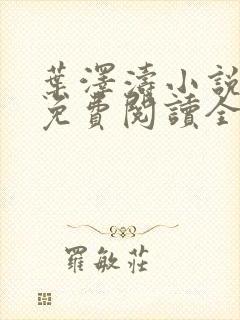 葉澤濤小說
免費閱讀全
羅敏莊